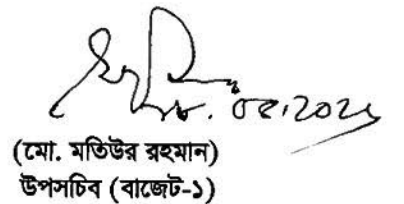 (মো. মতিউর রহমান)
উপসচিব (বাজেট-১)